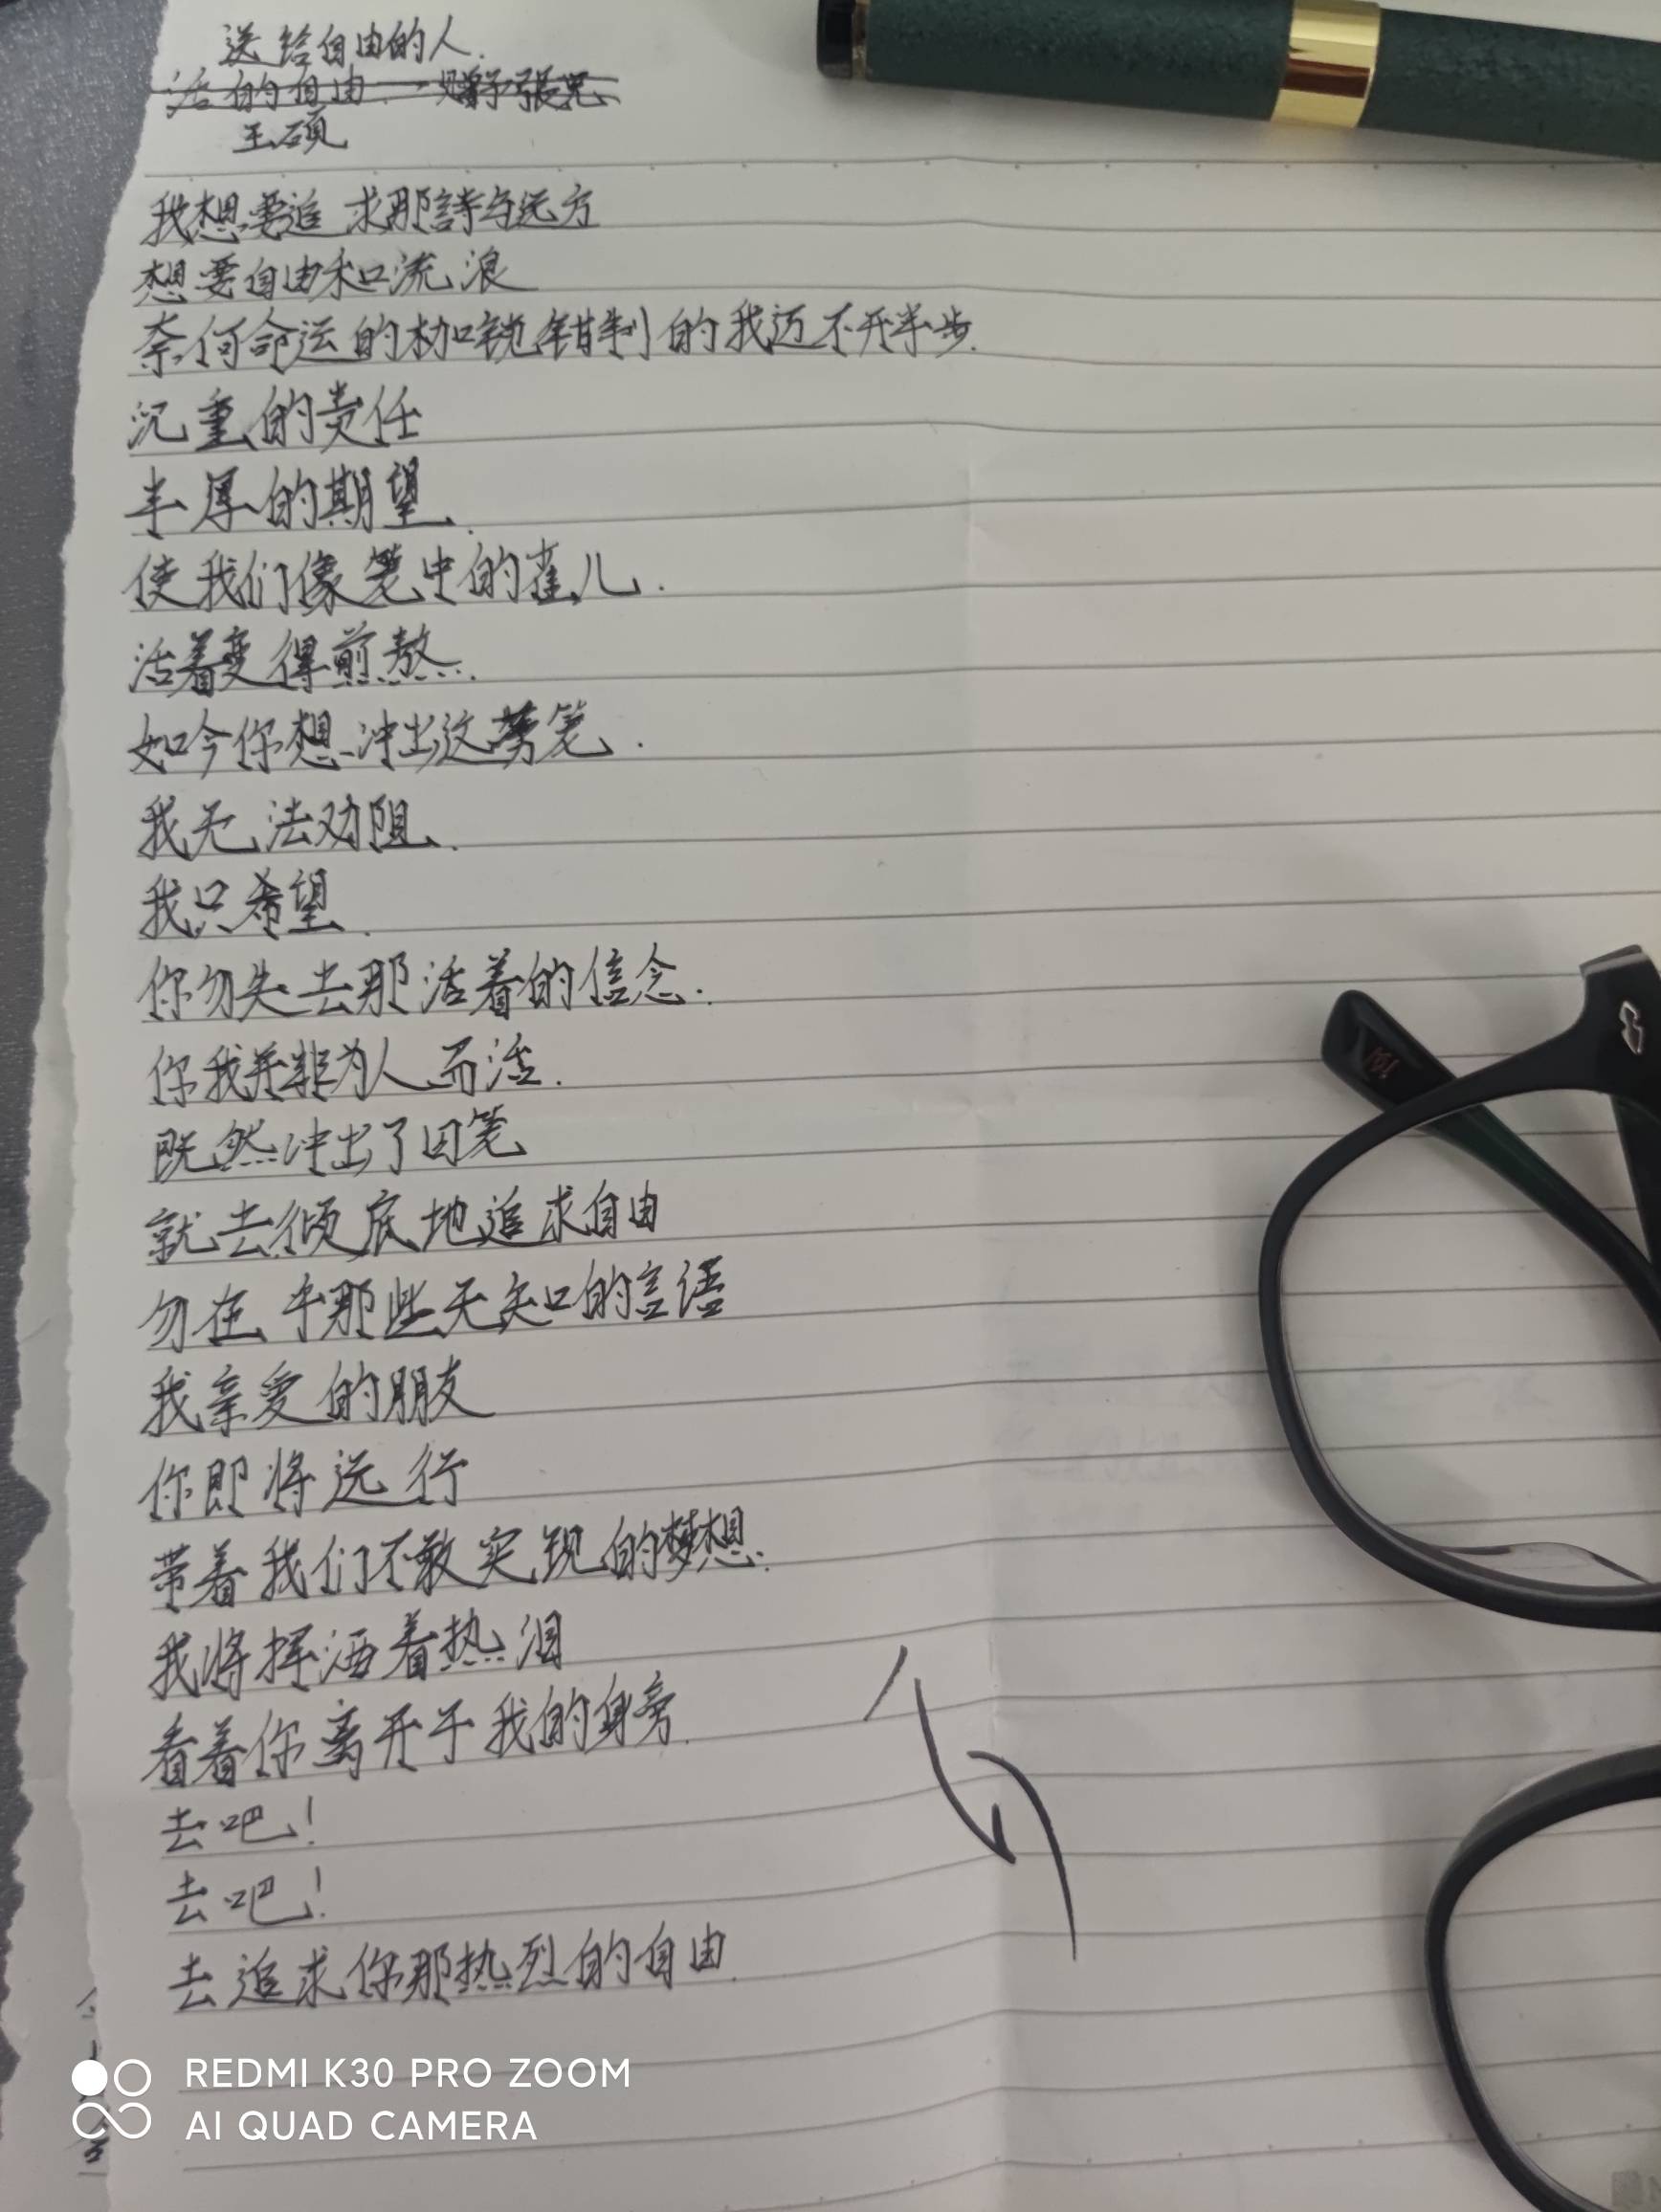 送给自由的人.
活的自由
王硕
我想要追求那詩与远方
想要自由和流浪
奈何命运的枷锁钳制的我迈不开半步.
沉重的责任
丰厚的期望.
使我们像笼中的雀儿.
活着变得煎熬.
如今你想冲出这劳笼.
我无法劝阻.
我只希望.
你勿失去那活着的信念.
你我并非为人而活.
既然冲出了囚笼
就去倾底地追求自由
勿在乎那些无知的言语
我亲爱的朋友
你即将远行
带着我们不敢实现的梦想.
我将挥洒着热泪
看着你离开于我的身旁.
去吧!
去吧!
去追求你那热烈的自由.
REDMI K30 PRO ZOOM
AI QUAD CAMERA